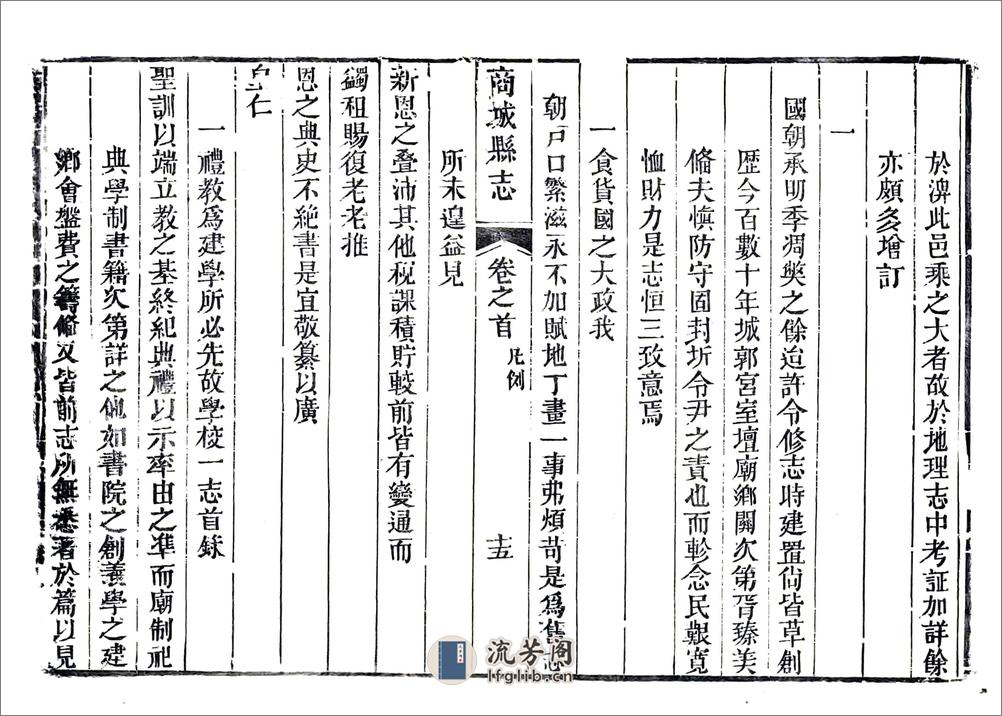 於渒此邑乘之大者故於地理志中考証加詳餘
亦頗多增訂
一
國朝承明季凋獘之餘迨許令修志時建置尙皆草創
歷今百數十年城郭宮室壇廟鄉關次第胥臻美
俻夫愼防守固封圻令尹之責也而軫念民艱寬
恤財力是志恒三致意焉
一食貨國之大政我
朝戸口繁滋永不加賦地丁畫一事弗煩苛是爲舊志
商城縣志
卷之首
凡例
十五
所未遑益見
新恩之叠沛其他稅課積貯較前皆有變通而
蠲租賜復老老推
恩之典史不絕書是宜敬纂以廣
皇仁
一禮教爲建學所必先故學校一志首錄
聖訓以端立教之基終紀典禮以示率由之凖而廟制祀
典學制書籍次第詳之他如書院之創義學之建
鄉會盤費之籌俻又皆前志所無悉著於篇以見
流芳阁
lfglib.cn